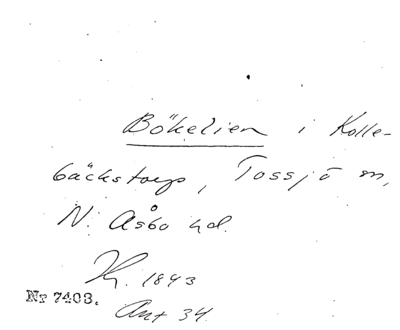 Bökelien i Kolle-
bäckstorp, Tossjö sn,
N. Åsbo hd.
Kr. 1843
Ant 34.
Nr 7403.